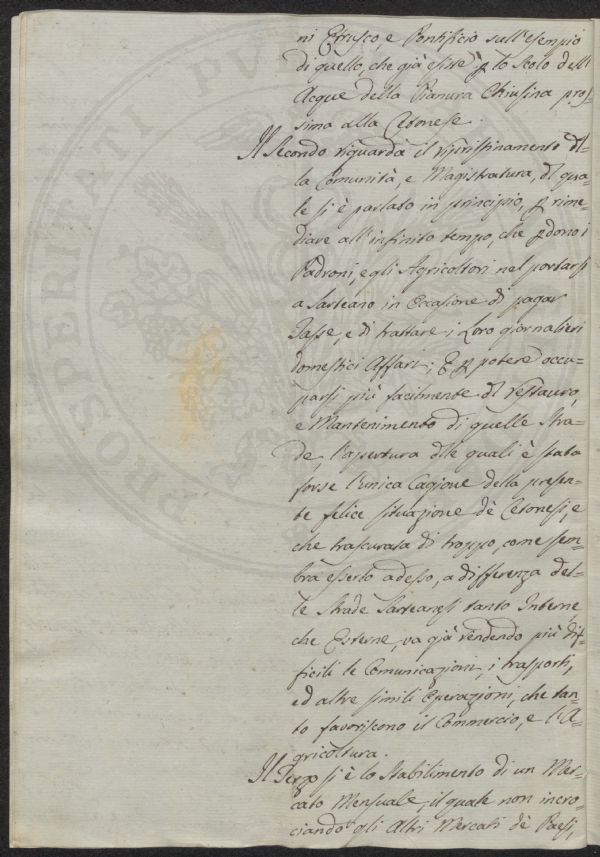 ni Etrusco, e Pontificio sull'esempio
di quello, che già esiste p lo Scolo dell
Acque della Pianura Chiusina pros-
sima alla Cetonese.
Il Secondo riguarda il ripristinamento del
la Comunità, e Magistratura, di qua-
le si è parlato in principio, p rime-
diare all'infinito tempo, che pdono i
Padroni, e gli Agricoltori nel portarsi
a Sarteano in Occasione di pagar
Tasse, e di trattare i Loro giornalieri
domestici Affari; E p potere occu-
parsi più facilmente del restauro,
e Mantenimento di quelle Stra-
de, l'apertura dlle quali è stata
forse l'unica Cagione della presen-
te felice situazione dè Cetonesi, e
che trascurata di troppo, come sem-
bra esserlo adesso, a differenza del-
le Strade Sarteanesi tanto Interne
che Esterne, va già rendendo più dif-
ficili le Comunicazioni, i trasporti,
ed altre simili Operazioni, che tan-
to favoriscono il Commercio, e l'A-
gricoltura.
Il Terzo si è lo Stabilimento di un Mer-
cato Mensuale, il quale non incro-
ciando gli Altri Mercati dè Paesi,
PROSPERITATI PU